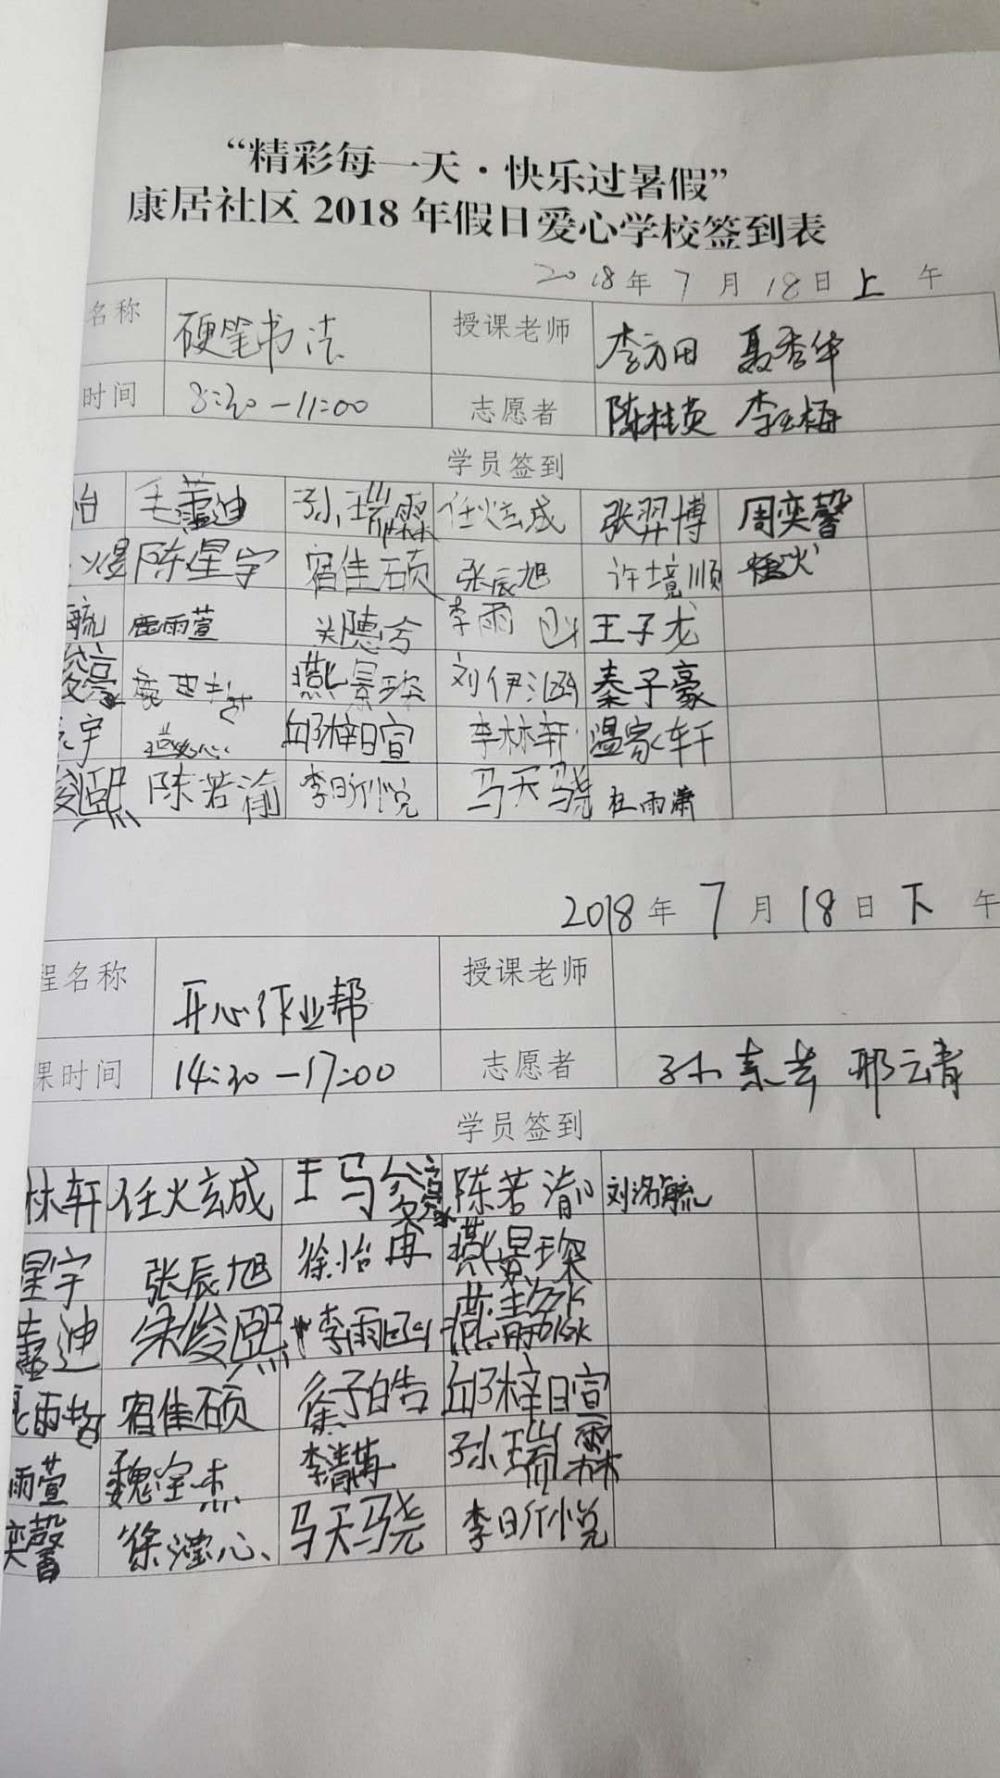 “精彩每一天·快乐过暑假”
康居社区 2018 年假日爱心学校签到表
2018年 7 月 18日 上 午
名称 硬笔书法 授课老师 李方田 聂秀华
时间 8:30-11:00 志愿者 陈桂英 李玉梅
学员签到
怡 毛蕙迪 孙瑞霖 任炫成 张羿博 周奕馨
陈星宇 宿佳硕 张辰旭 许境顺
毓 鹿雨萱 关德兮 李雨 王子龙
燕景琛 刘伊涵 秦子豪
宇 邱梓暄 李林轩 温家轩
俊熙 陈若渝 李昕悦 马天骁 杜雨潇
2018年 7 月 18日 下 午
程名称 开心作业帮 授课老师
课时间 14:30-17:00 志愿者 孙素芸 邢云青
学员签到
林轩 任炫成 陈若渝 刘洺毓
星宇 张辰旭 徐怡冉 燕景琛
迪 宋俊熙 李雨函
宿佳硕 徐子皓 邱梓暄
雨萱 魏宇杰 李清苒 孙瑞霖
奕馨 徐滢心 马天骁 李昕悦